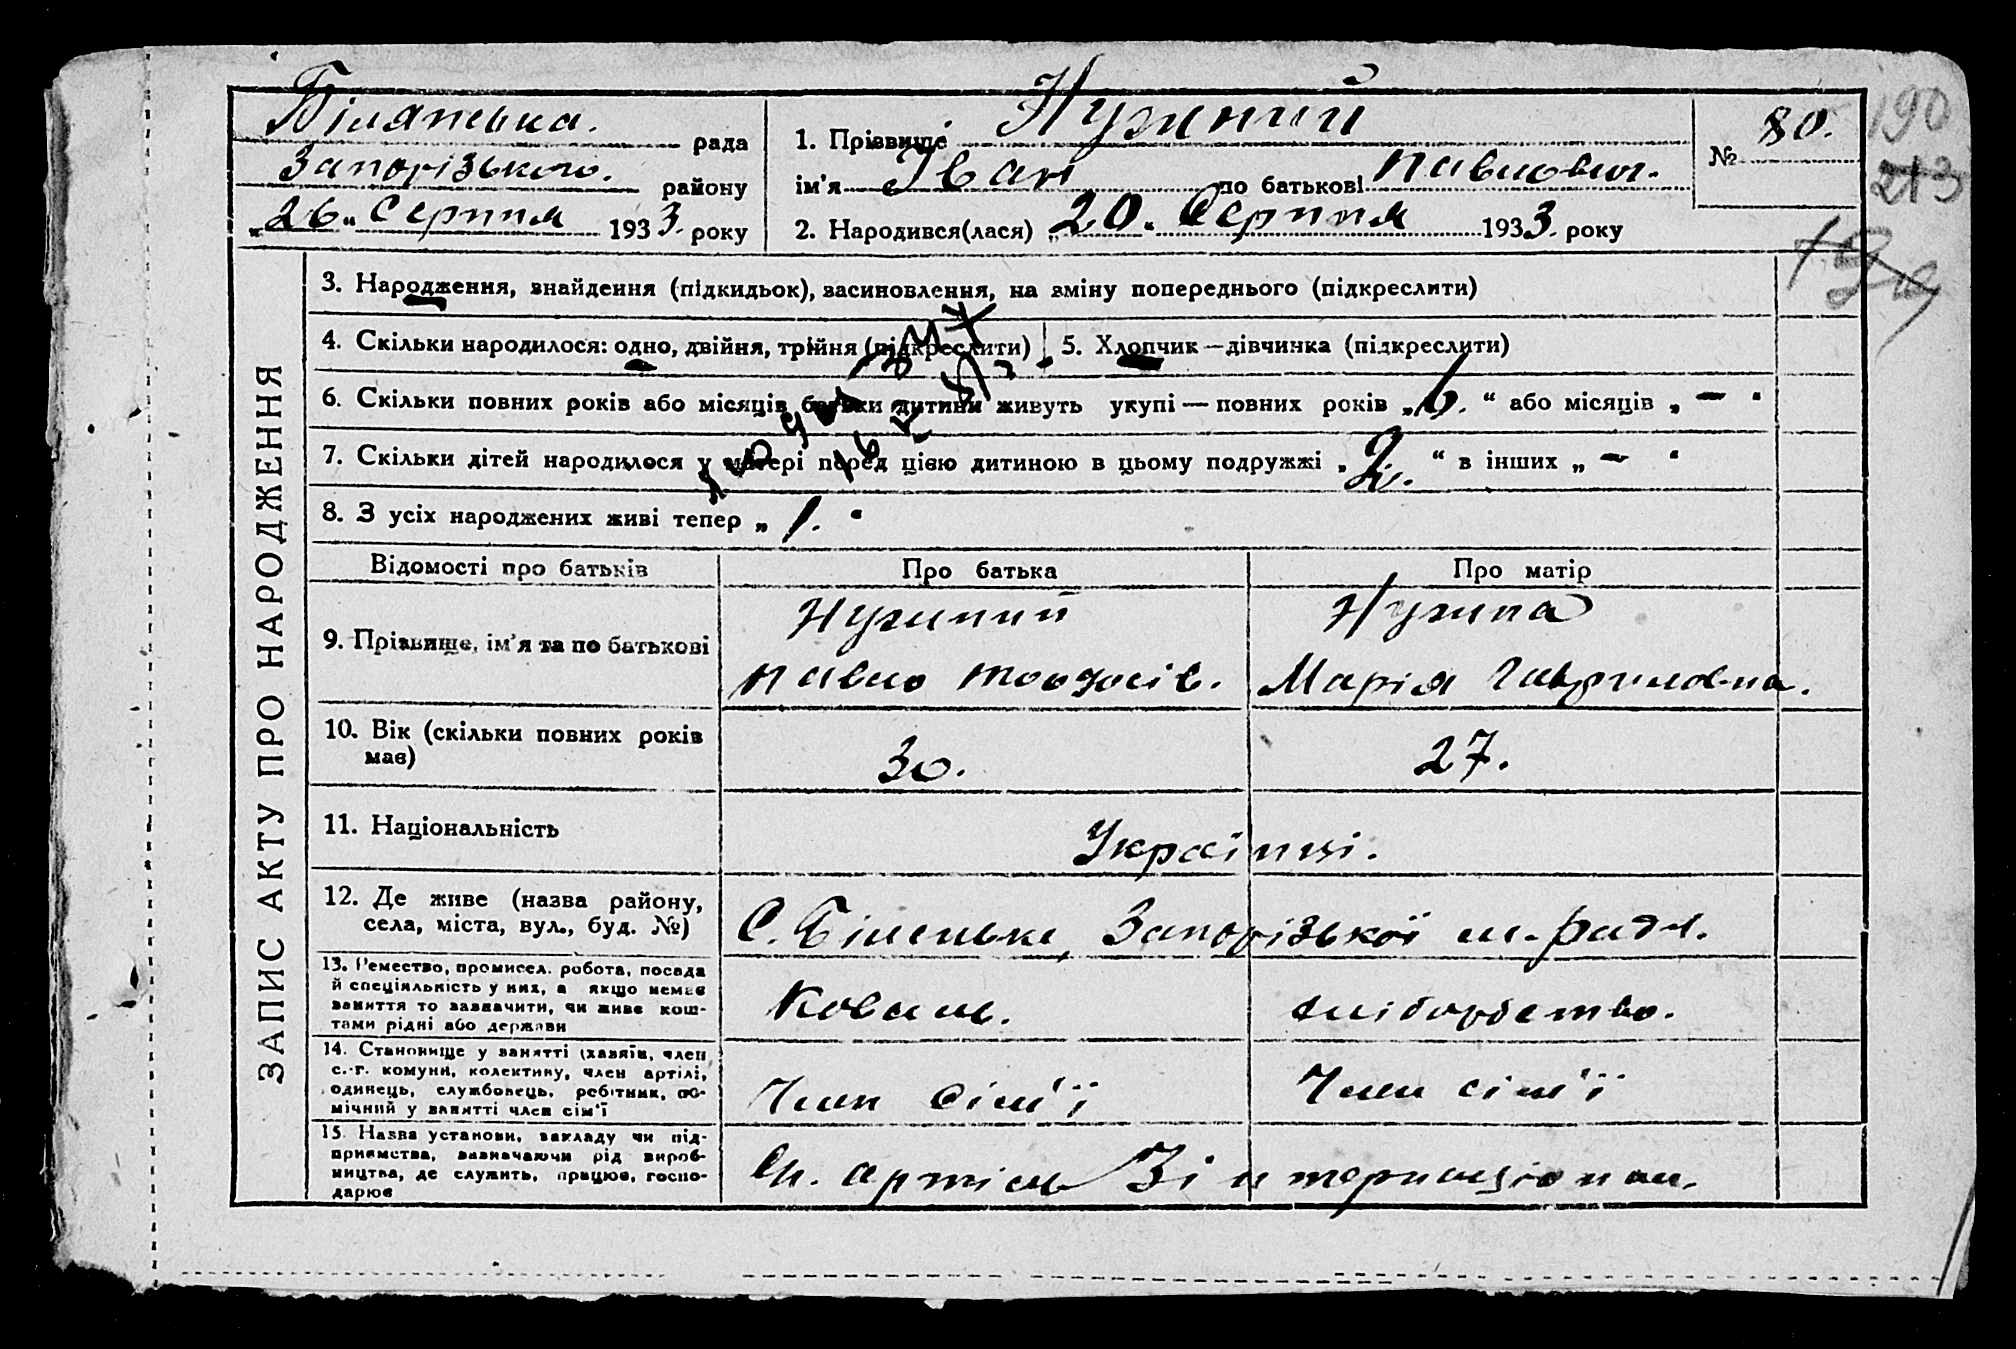 Біляпська. рада
Запорізького. району
„26„ Серпня 1933. року
1. Прізвище Нужний
ім'я Іван по батькові Павлович.
2. Народився(лася) „20. Серпня 1933. року
№ 80.
190
213
ЗАПИС АКТУ ПРО НАРОДЖЕННЯ
3. Народження, знайдення (підкидьок), засиновлення, на зміну попереднього (підкреслити)
4. Скільки народилося: одно, двійня, трійня (підкреслити)
5. Хлопчик — дівчинка (підкреслити)
6. Скільки повних років або місяців батьки дитини живуть укупі — повних років „6. “ або місяців „ — “
7. Скільки дітей народилося у матері перед цією дитиною в цьому подружжі „2. “ в інших „ — “
8. З усіх народжених живі тепер „ 1. “
Відомості про батьків
Про батька
Про матір
9. Прізвище, ім'я та по батькові
Нужний
Павло Тодосів.
Нужна
Марія Гавриловна.
10. Вік (скільки повних років має)
30.
27.
11. Національність
Українці.
12. Де живе (назва району,
села, міста, вул., буд. №)
С. Біленьке, Запорізької м. Ради.
13. Ремество, промисел. робота, посада
й спеціяльність у них, а якщо немає
заняття то зазначити, чи живе кош-
тами рідні або держави
Коваль.
хліборобство.
14. Становище у занятті (хазяїн, член
с.-г. комуни, колективу, член артілі,
одинець, службовець, робітник, по-
мічний у занятті член сім'ї
Член сім'ї
Член сім'ї
15. Назва установи, закладу чи під-
приємства, зазначаючи рід вироб-
ництва, де служить, працює, госпо-
дарює
Сг. артіль 3 інтернаціонал.